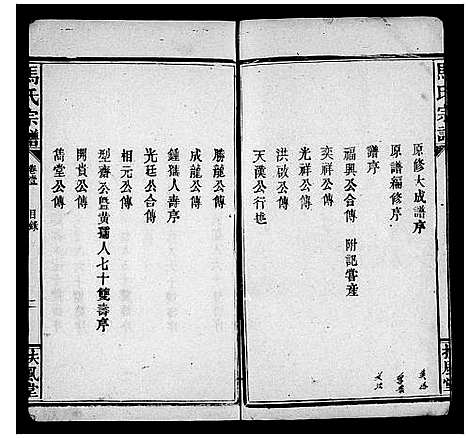 馬氏宗譜
扶風堂
原修大成譜序
原譜編修序
譜序
福興公合傳 附記嘗產
奕祥公傳
光祥公傳
洪啟公傳
天漢公行述
勝龍公傳
成龍公傳
鍾孺人壽序
光廷公合傳
相元公傳
型齋公暨黃孺人七十雙壽序
開貲公傳
雋堂公傳
馬氏宗譜
卷壹
目錄
扶風堂